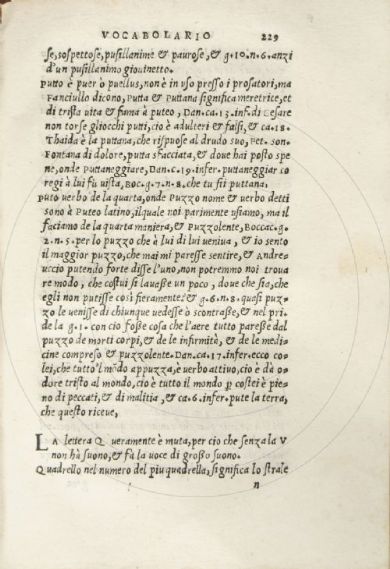 VOCABOLARIO 229
se, sospettose, pusillanime & paurose, & g.10.n.6. anzi
d'un pusillanimo giovinetto.
Putto è puer o puellus, non è in uso presso i prosatori, ma
Fanciullo dicono, Putta & Puttana significa meretrice, et
di trista vita & fama à puteo, Dan. ca.13. inf. di Cesare
non torse gliocchi putti, cio è adulteri & falsi, & ca.18.
Thaida è la puttana, che rispuose al drudo suo, Pet. Son.
Fontana di dolore, putta sfacciata, & doue hai posto spe
ne, onde Puttaneggiare, Dan. C.19. infer. puttaneggiar co
regi à lui fu uista, Boc. g.7.n.8. che tu sii puttana.
Puto uerbo de la quarta, onde Puzzo nome & uerbo detti
sono à Puteo latino, ilquale noi parimente usiamo, ma il
faciamo de la quarta maniera, & Puzzolente, Boccac. g.
2.n.5. per lo puzzo che à lui di lui ueniua, & io sento
il maggior puzzo, che mai mi paresse sentire, & Andre-
uccio putendo forte disse l'uno, non potremmo noi troua
re modo, che costui si lauasse un poco, doue che sia, che
egli non putisse cosi fieramente? & g.6.n.8. quasi puz-
zo le uenisse di chiunque uedesse ò scontrasse, & nel pri.
de la g.1. con cio fosse cosa che l'aere tutto paresse dal
puzzo de morti corpi, & de le infirmità, & de le medi-
cine compreso & puzzolente. Dan. ca.17. infer. ecco co-
lei, che tutto'l mōdo appuzza, è uerbo attiuo, cio è dà o-
dore tristo al mondo, cio è tutto il mondo ꝑ costei è pie-
no di peccati, & di malitia, & ca.6. infer. pute la terra,
che questo riceue,
LA lettera Q ueramente è muta, per cio che senza la V
non hà suono, & fà la uoce di grosso suono.
Quadrello nel numero del piu quadrella, significa lo strale
n